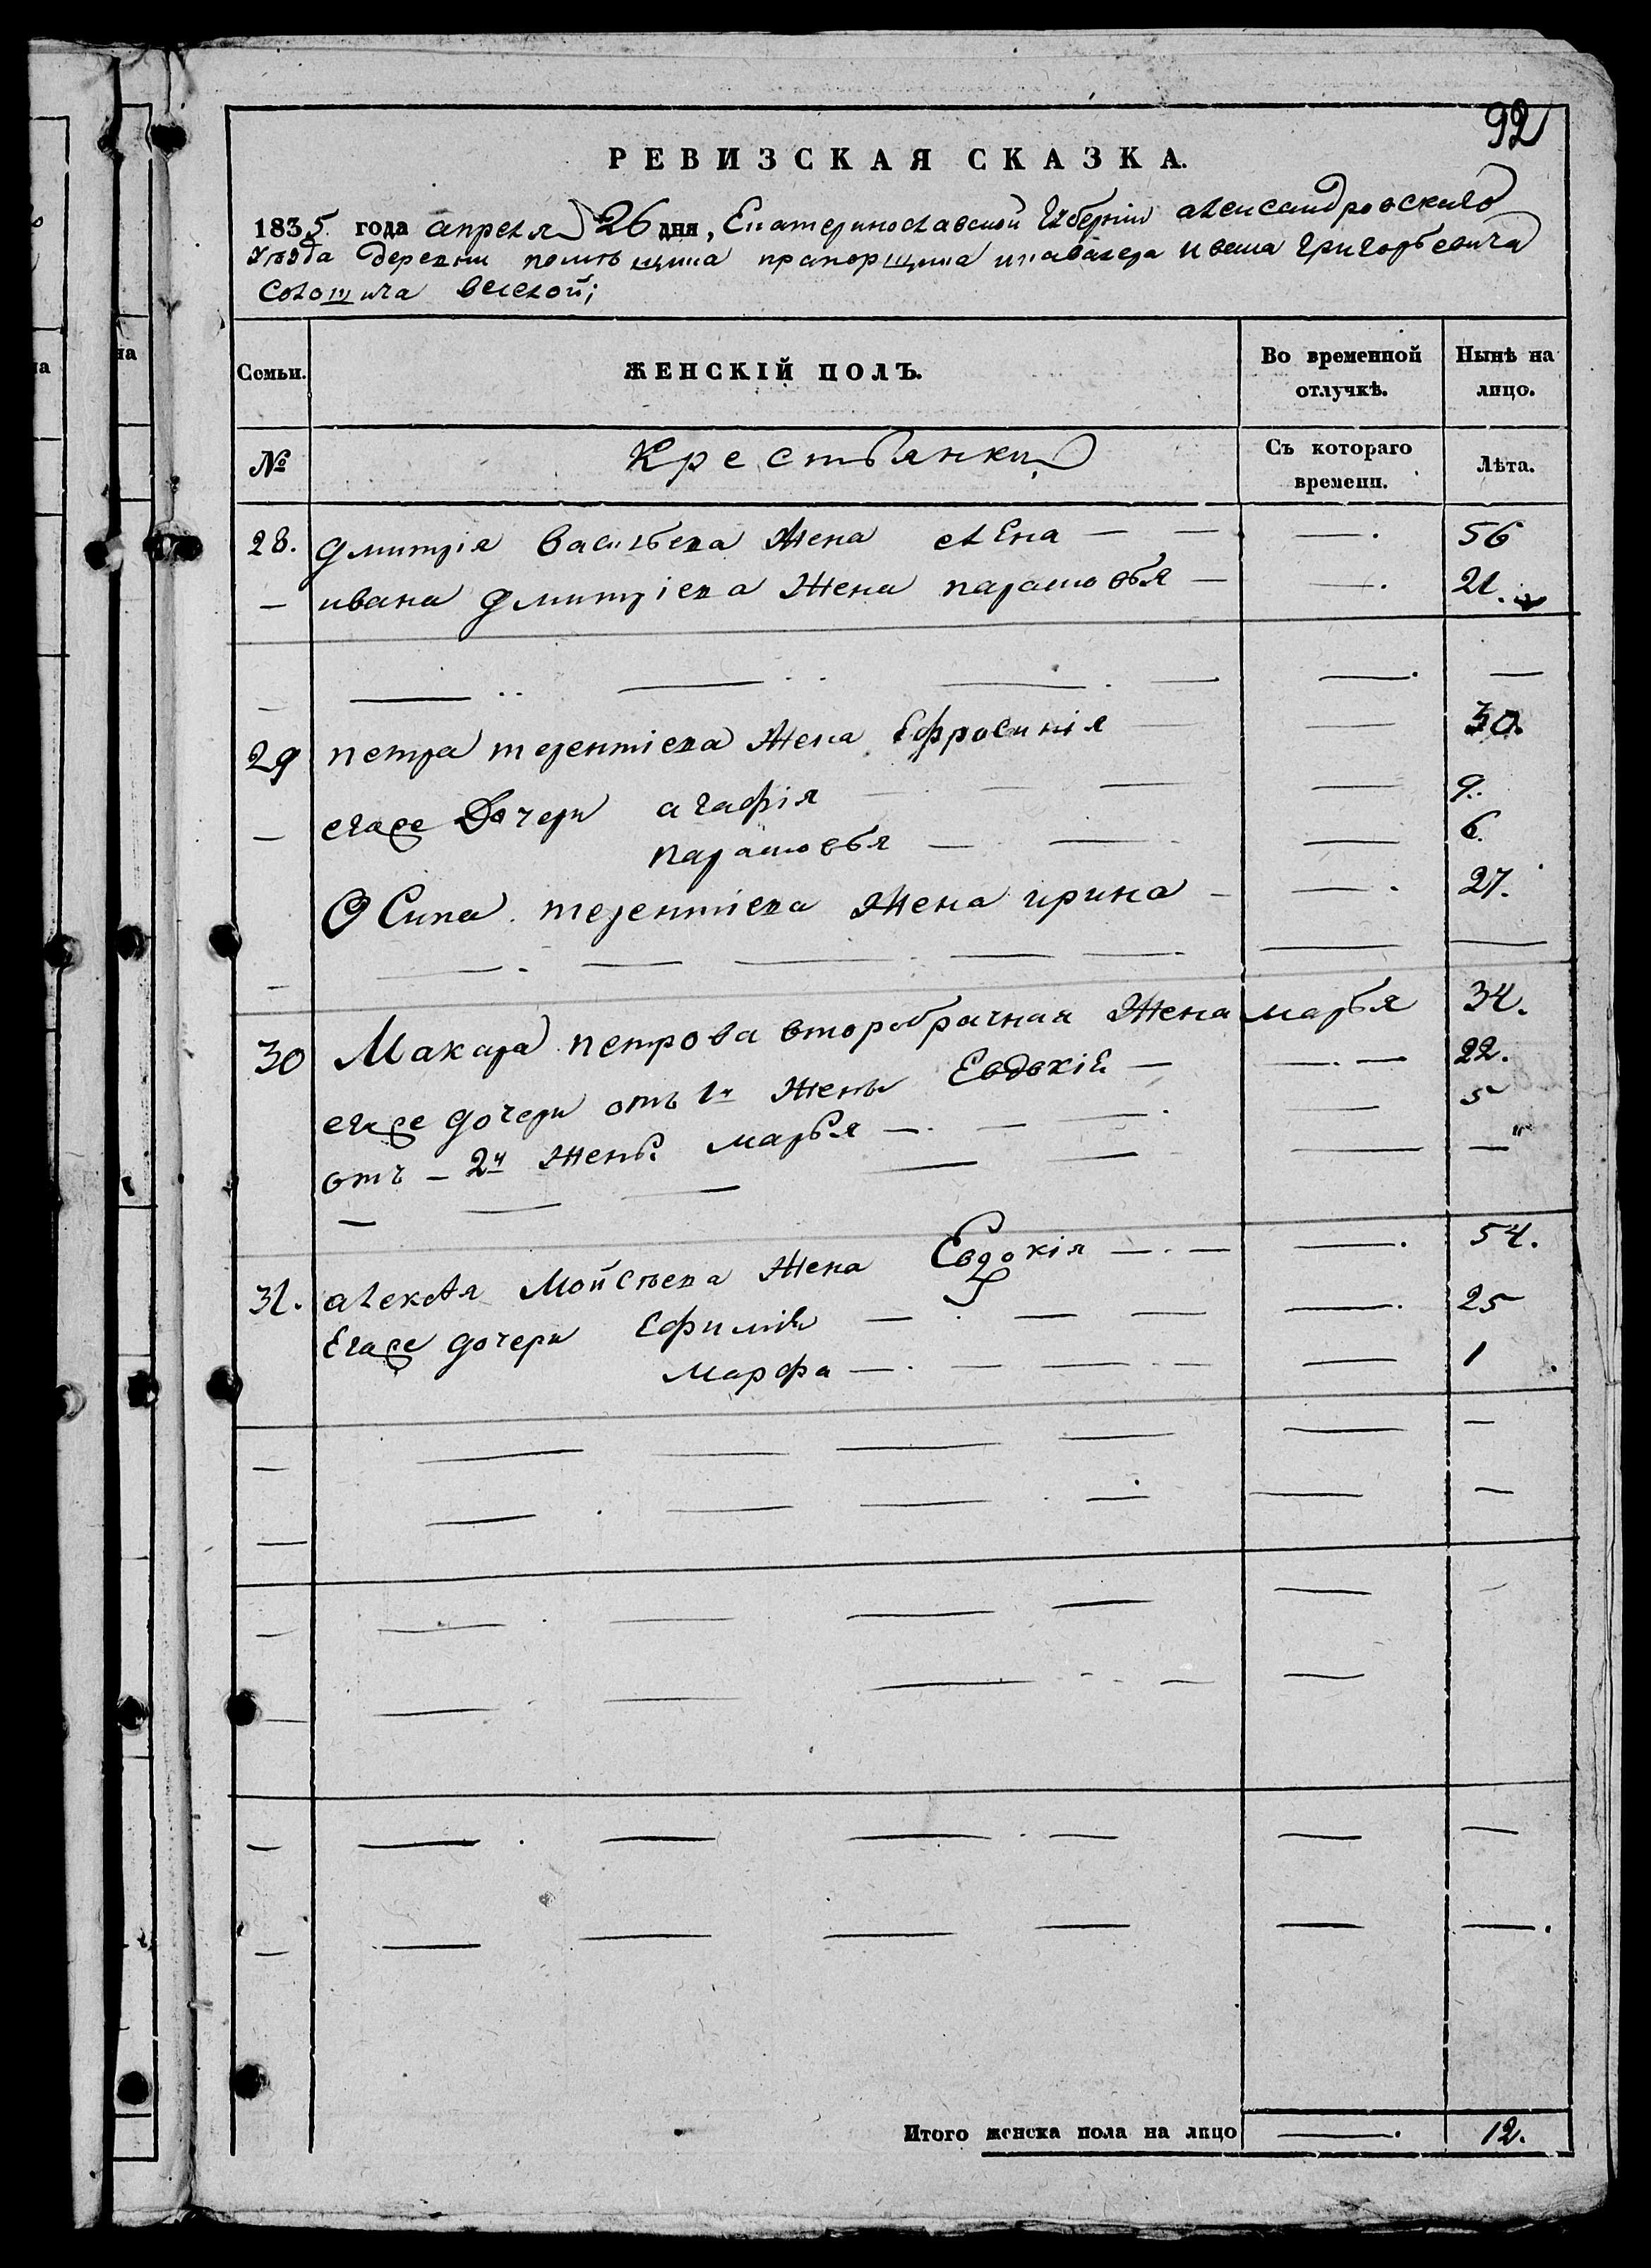 92
РЕВИЗСКАЯ СКАЗКА.
1835 года апреля 26 дня, Екатеринославской Губерніи александровскаго
Уѣзда деревни помѣщика прапорщика и кавалера ивана григорьевича
веселой;
Семьи. ЖЕНСКІЙ ПОЛЪ. Во временной отлучкѣ. Нынѣ на лицо.
№ Крестьянки Съ котораго времени. Лѣта.
28. дмитрія васильева Жена елена — — —. 56
— ивана дмитріева Жена парасковья — —. 21.
29 петра терентіева Жена Ефросинія — — 30.
— егоже Дочери агафія — — — — 9.
парасковья — — — 6.
Осипа терентіева Жена ирина — —. 27.
30 Макара петрова второбрачная Жена марья 34.
егоже дочери отъ 1й Жены Евдокія — —.— 22.
отъ — 2й Жены марья —. — —. — 5
31. алексѣя Мойсѣева Жена Евдокія —.— —. 54.
Егоже дочери Ефимія —. — — —. 25
Марфа —. — — .— — 1
Итого женска пола на лицо —. 12.